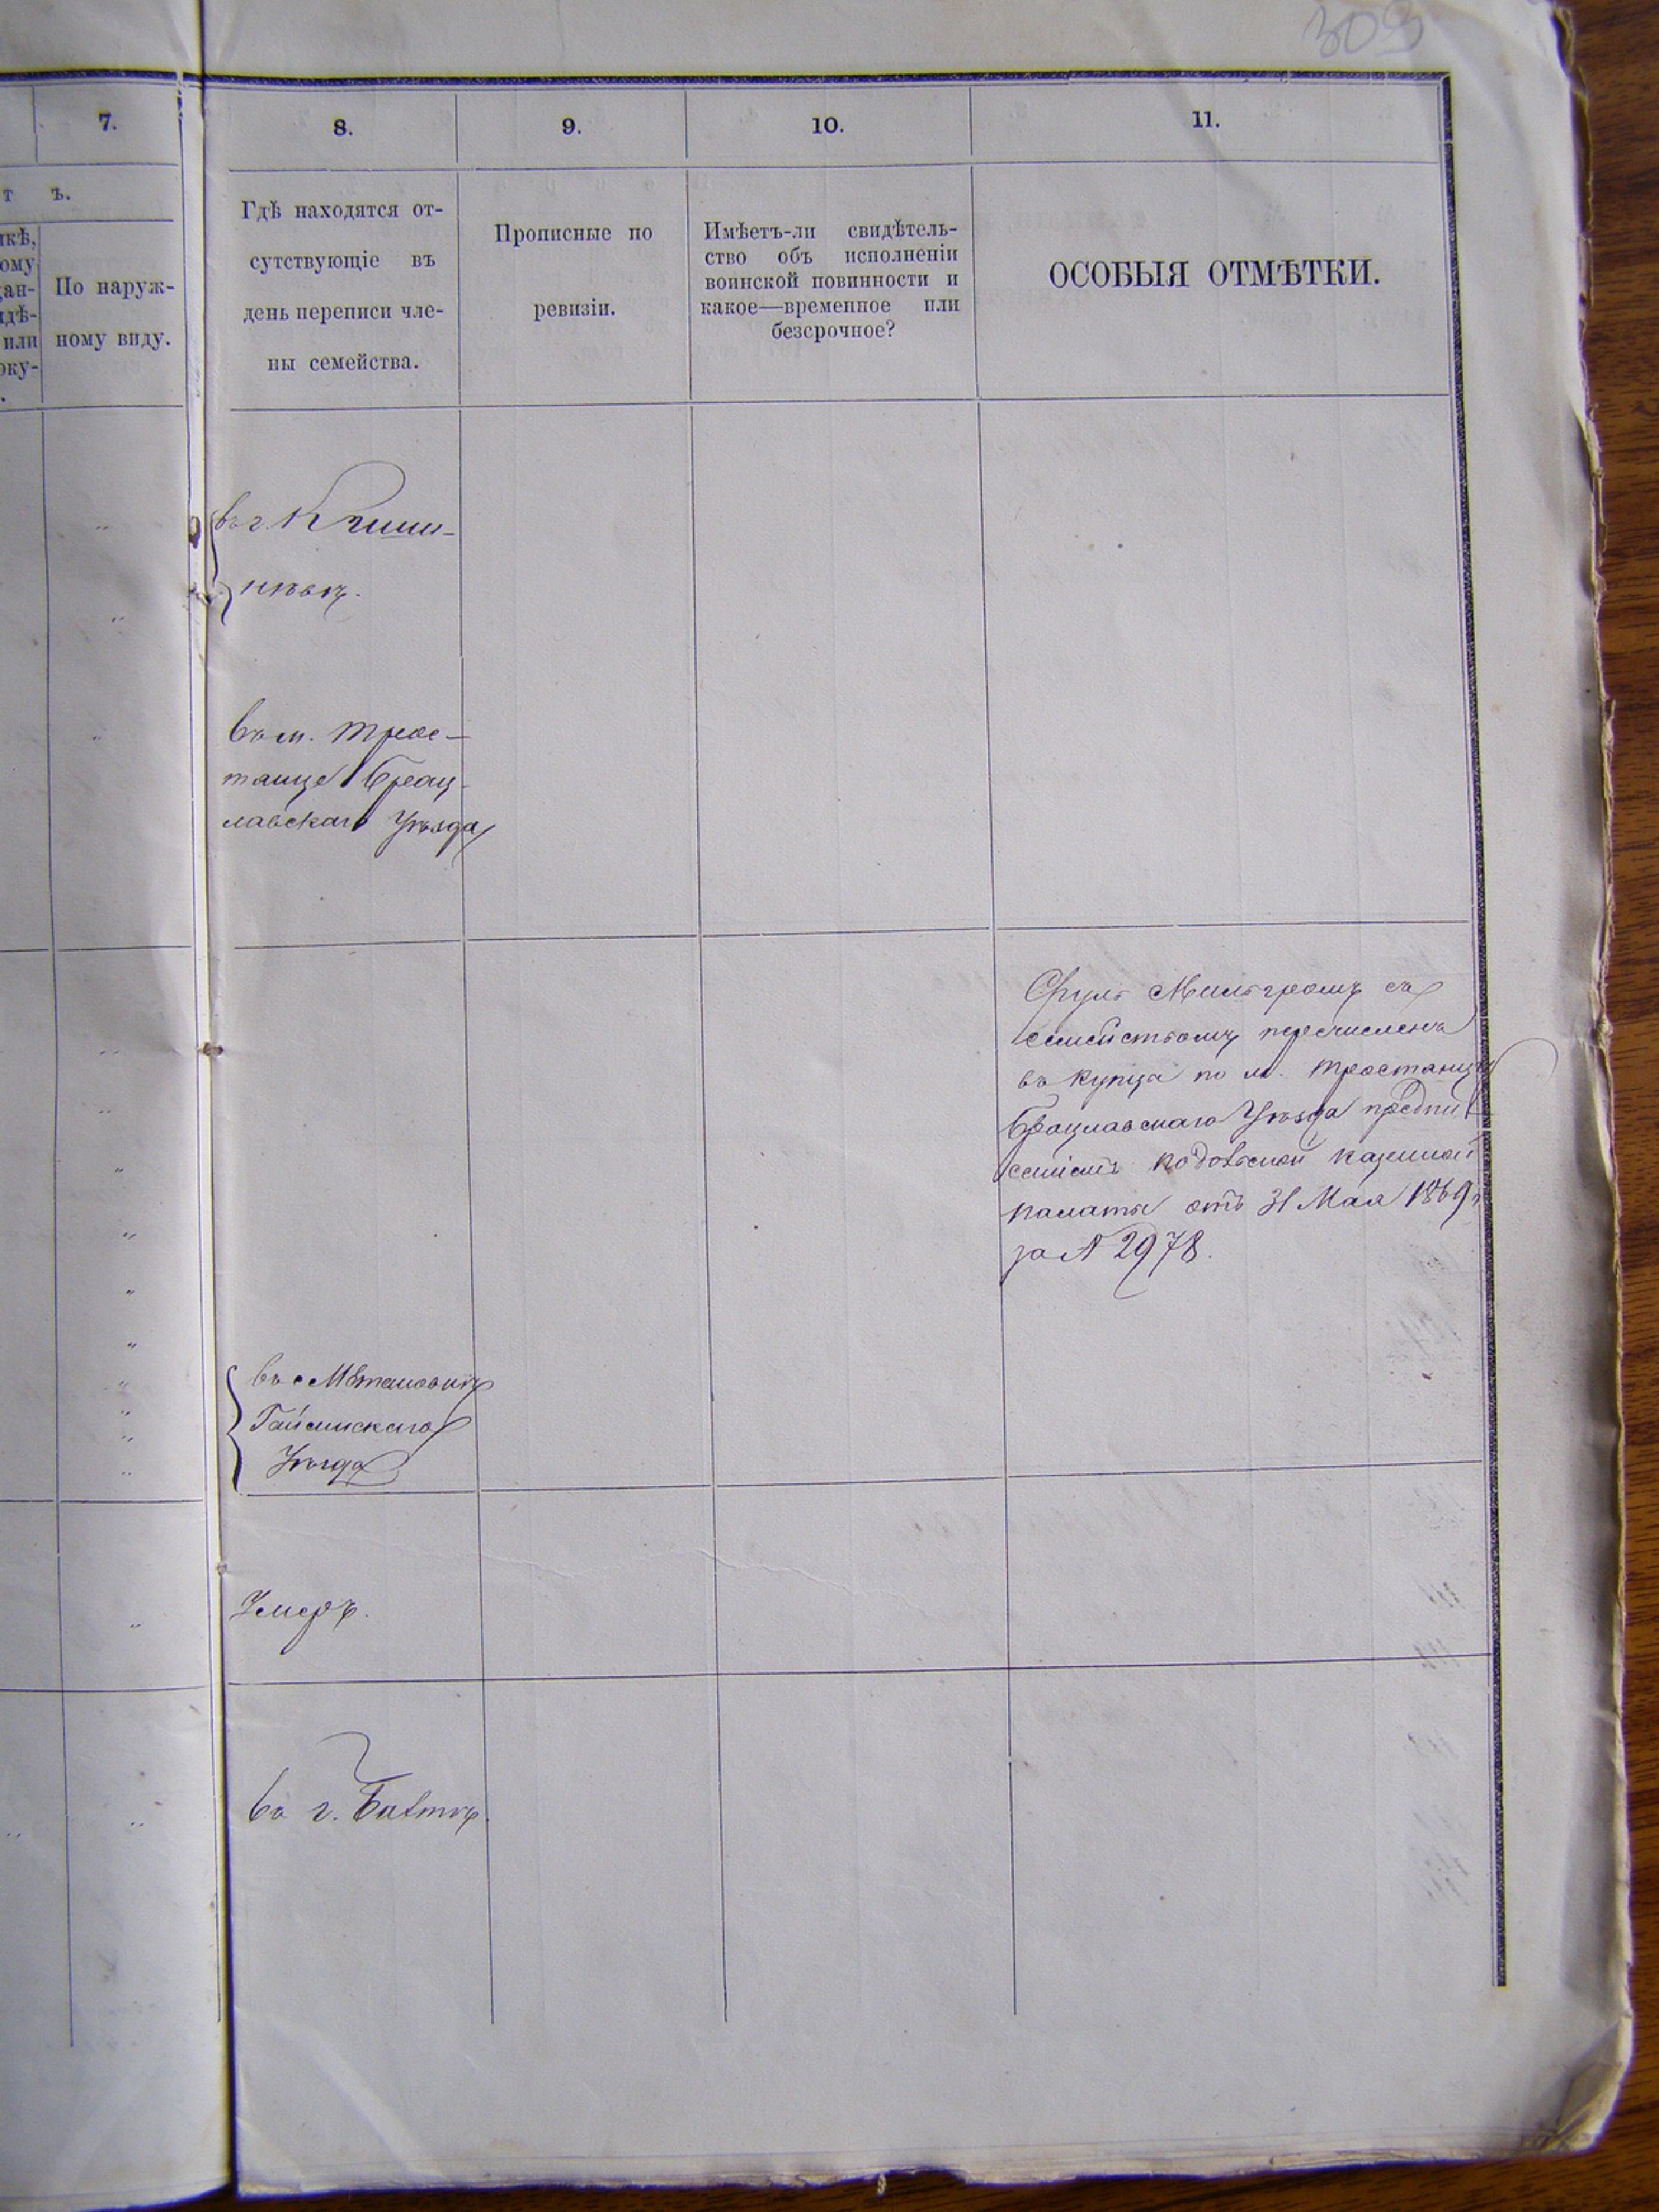 309
7.
8.
9.
10.
11.
т ъ.
По наруж-
ному виду.
Гдѣ находятся от-
сутствующіе въ
день переписи чле-
ны семейства.
Прописные по
ревизіи.
Имѣетъ-ли свидѣтель-
ство объ исполненіи
воинской повинности и
какое—временное или
безсрочное?
ОСОБЫЯ ОТМѢТКИ.
въ г. Киши-
невѣ.
въ м. Трос-
танце Брац-
лавскаго Уѣзда
Сруль Мильгромъ съ
семействомъ перечисленъ
въ купца по м. Тростанцу
Брацлавскаго Уѣзда предпи-
саніемъ Подольской казенной
палаты отъ 31 Мая 1869 г.
за № 2978.
въ с.
Гайсинскаго
Уѣзда
Умеръ.
въ г. Балтѣ.